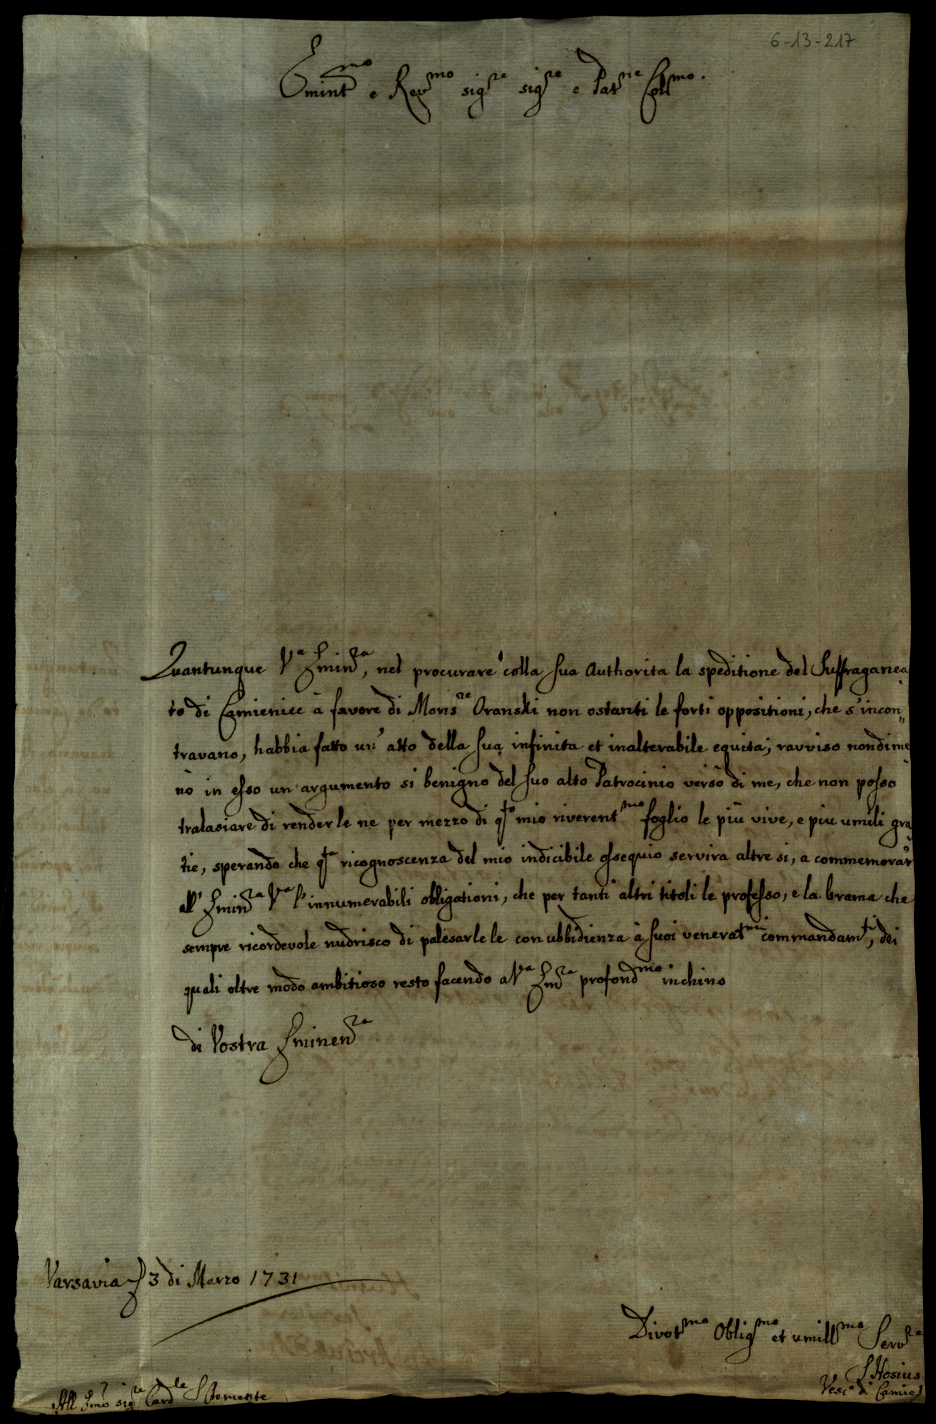 6-13-217
Emint^mo e Rev^mo sig^re sig^re e Pat^ne Coll^mo.
Quantunque V^a Emin^za, nel procurare colla sua Authorita la speditione del Suffraganea
to di Camieniec à favore di Mons^re Oranski non ostanti le forti oppositioni, che s'incon„
travano, habbia fatto un' atto della sua infinita et inalterabile equita; ravviso nondime
no in esso un argumento si benigno del suo alto Patrocinio verso di me, che non posso
tralasiare di renderle ne per mezzo di q̃to mio riverent^mo foglio le più vive, e piu umili gra
tie, sperando che q̃ta ricognoscenza del mio indicibile ossequio servira altre si, a commemorar
all' Emin^za V^a l'innumerabili obligationi, che per tanti altri titoli le professo, e la brama che
sempre ricordevole nudrisco di palesarle le con ubbidienza à suoi venerat^mi commandam^ti, dei
quali oltre modo ambitioso resto facendo a V^a Em^za profond^mo inchino
di Vostra Eminen^za
Varsavia 3 di Marzo 1731
Divot^mo Oblig^mo et umill^mo Serv^re
S Hosius
Vesc^o di Camie
All Emo sig^re Card^le S Clemente